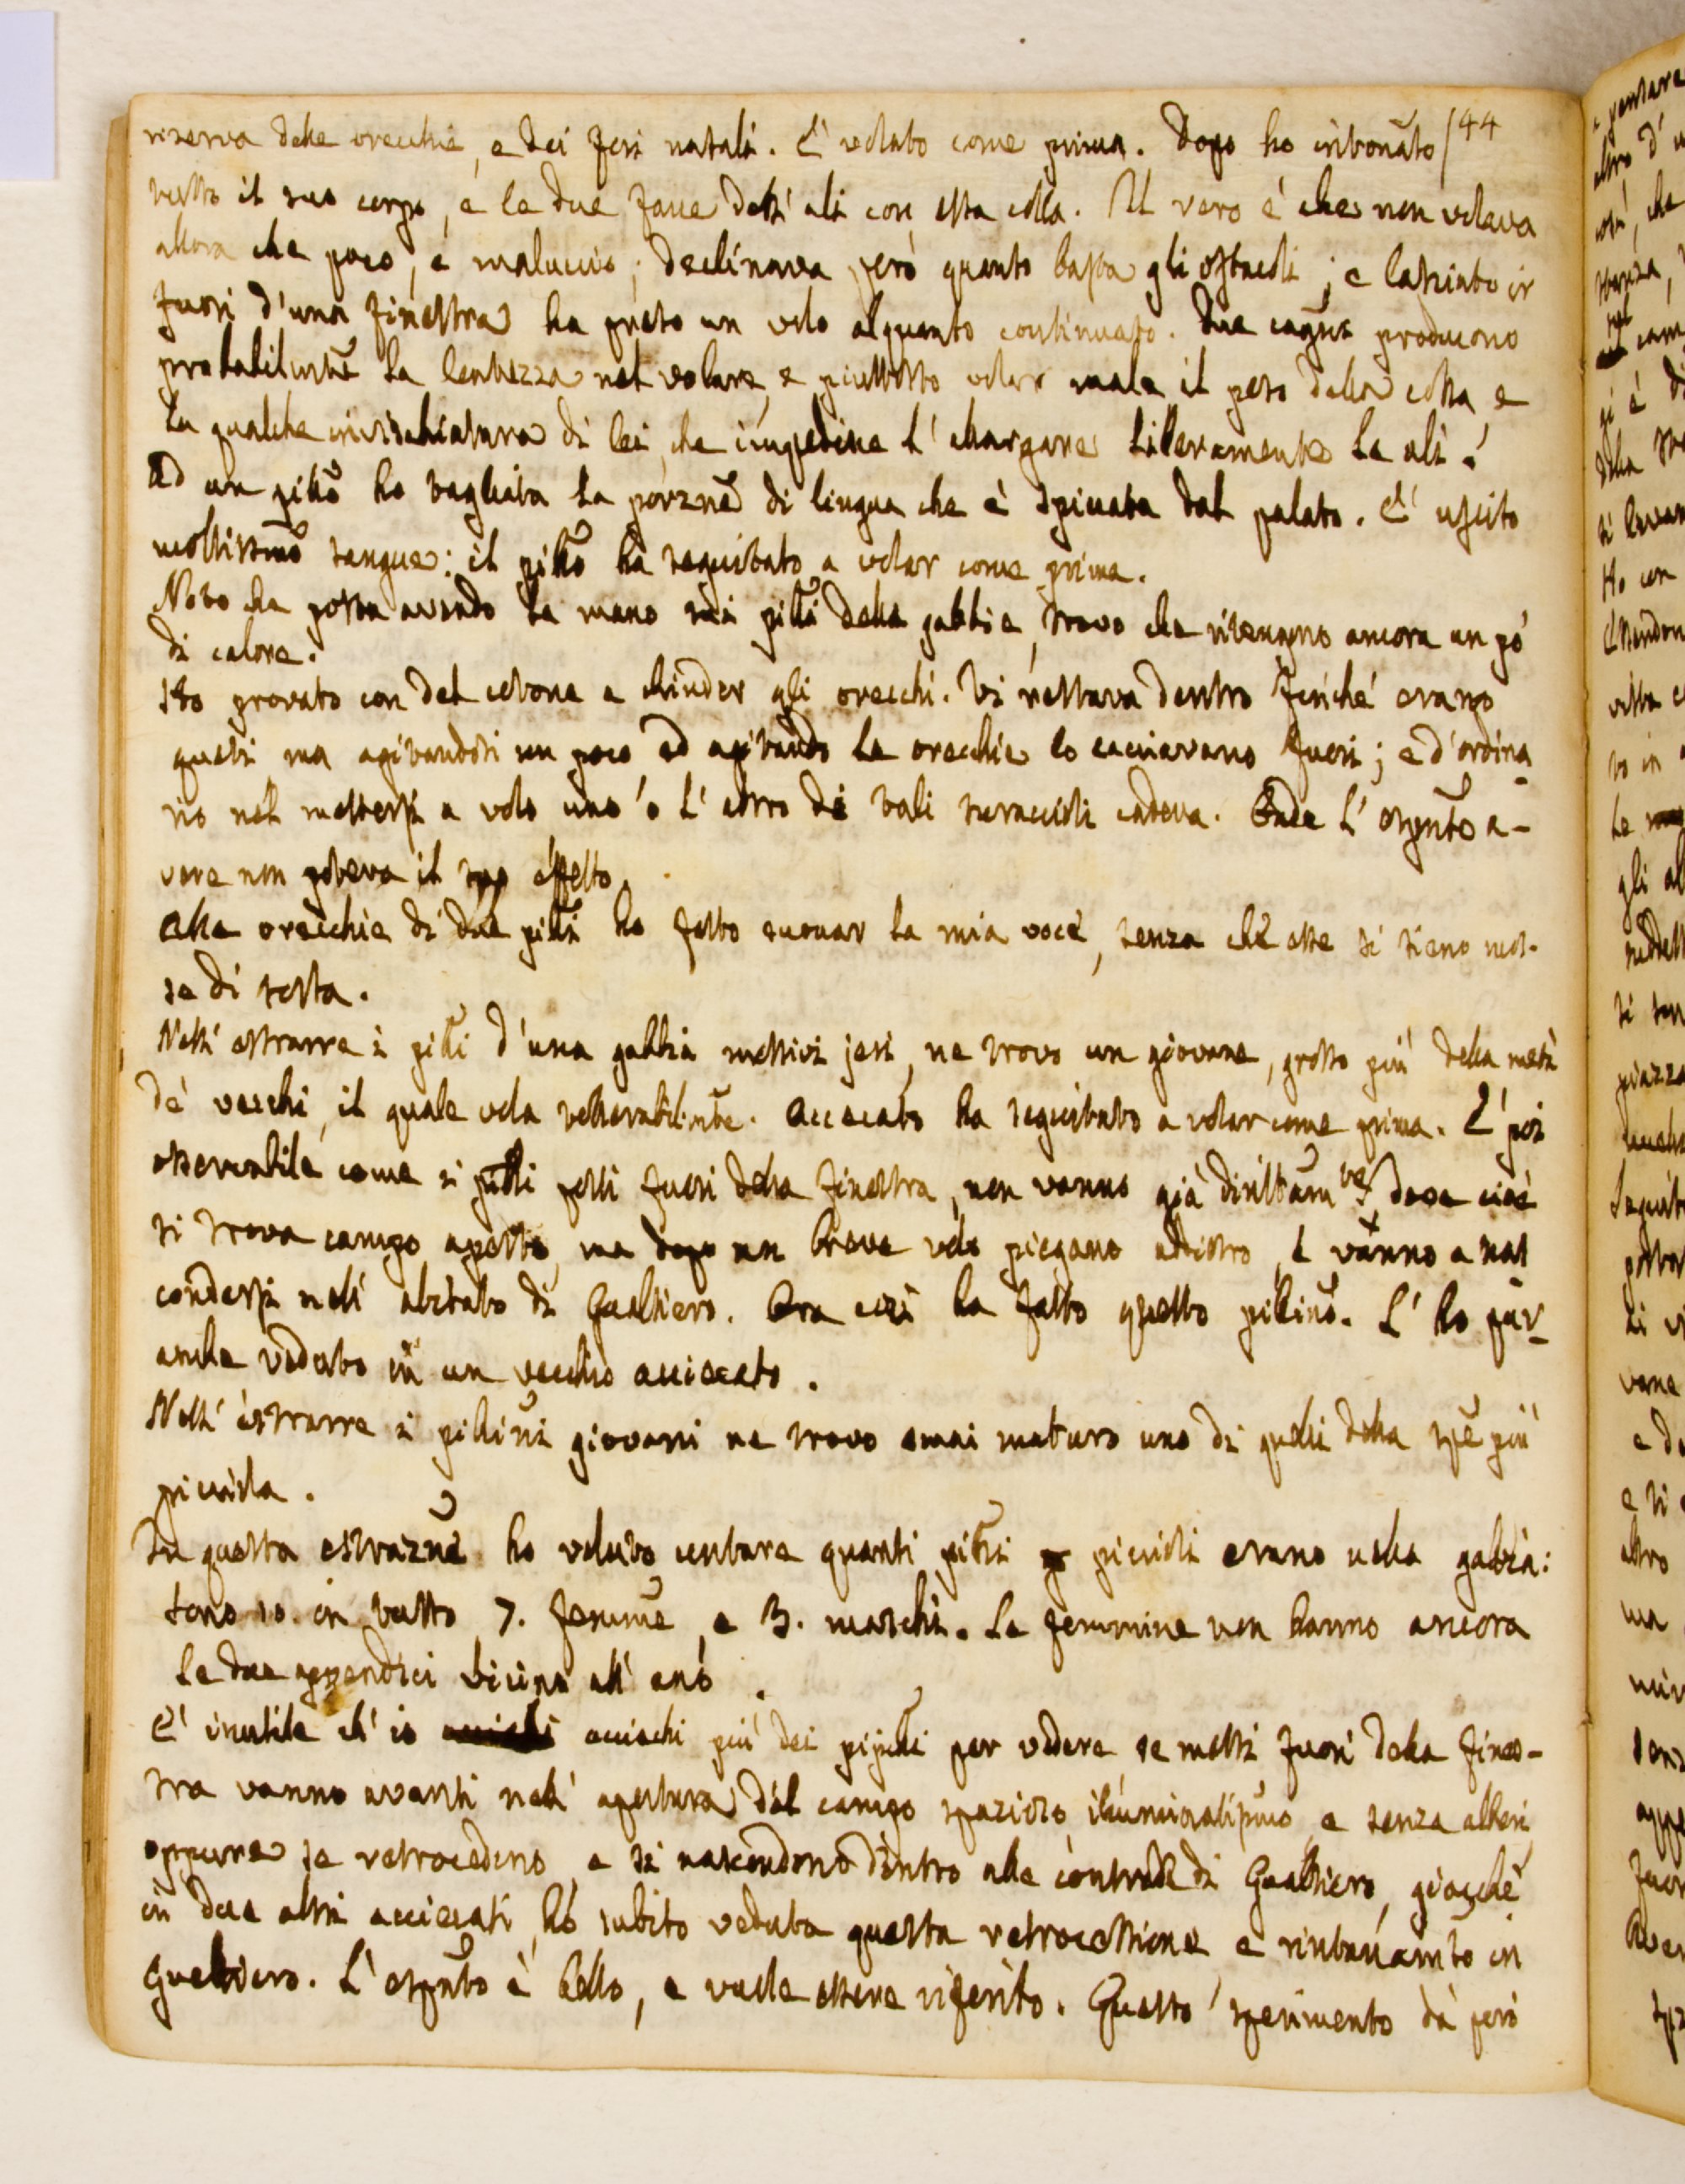 riserva delle orecchie, e dei fori natali. E' volato come prima. Dopo ho intonāto /144
tutto il suo corpo, e le due facce dell' ali con essa colla. Il vero è che non volava
allora che poco, e maluccio; declinava però quanto basta gli ostacoli; e lasciato ir
fuori d'una finestra ha preso un volo alquanto continuato. Due cagni producono
probabilmtē la lentezza nel volare, e piuttosto volar male il peso della colla, e
la qualche invischiatura di lei, che impedisce l' allargare liberamente le ali.
Ad un pillō ho tagliata la porznē di lingua che è spiccata dal palato. E' uscito
moltissmō sangue: il pillō ha seguitato a volar come prima.
Noto che posta avendo la mano sui pillī della gabbia, trovo che ritengono ancora un pò
di calore.
Ho provato con del cotone a chiuder gli orecchi. Vi restava dentro finchè erano
quieti ma agitandosi un poco ed agitando le orecchie lo cacciavano fuori; e d'ordina-
rio nel mettersi a volo uno o l' altro di tali turaccioli cadeva. Onde l' espmtō a-
vere non poteva il suo effetto.
Alle orecchie di due pillī ho fatto suonar la mia voce, senza che esse si sieno mos-
se di sosta.
Nell' estrarre i pillī d'una gabbia messivi jeri, ne trovo un giovane, grosso più della metà
de' vecchi, il quale vola tollerabilmtē. Accecato ha seguitato a volar come prima. E' poi
osservabile come i pillī posti fuori della finestra, non vanno già dirittamte dove cioè
si trova campo aperto, ma dopo un breve volo piegano addietro, e vanno a nas
condersi nell' abitato di Gualtiero. Ora così ha fatto questo pillinō. L' ho pur-
anche veduto in un vecchio acciecato.
Nell' estrarre i pillinī giovani ne trovo omai maturo uno di quelli della spē più
picciola.
In questa estraznē ho voluto contare quanti pillī piccioli erano nella gabbia:
sono 10. in tutto 7. femmē, e 3. maschi. Le femmine non hanno ancora
le due appendici vicine all' ano.
E' inutile ch' io acciechi più dei pipllī per vedere se messi fuori della fines-
tra vanno avanti nell' apertura del campo spazioso illuminatissmō, e senza alberi
oppure se retrocedono, e si nascondono dentro alle contrade di Gualtiero, giacchè
in due altri acciecati, hò subito veduta questa retrocessione e rintanamtō in
Gualtiero. L' espmtō è bello, e vuole essere riferito. Questo sperimento dà però